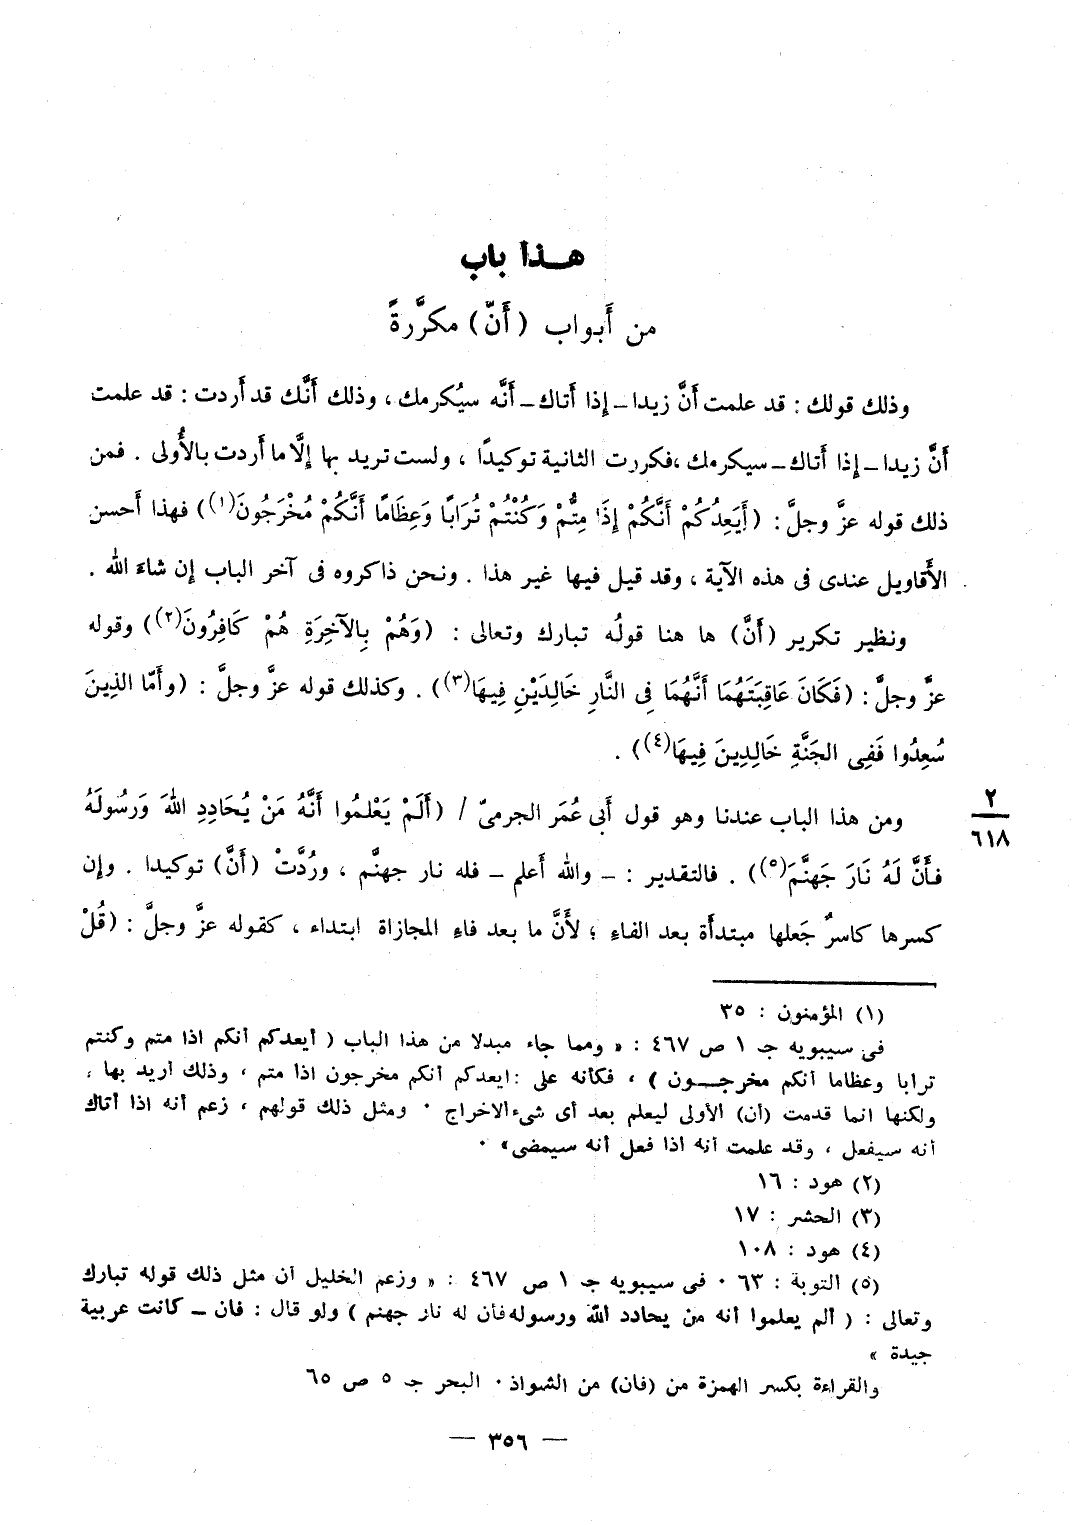 هـذا باب
من أَبواب (أَنّ) مكرَّرةً
وذلك قولك : قد علمت أَنَّ زيدا ــ إذا أَتاك ــ أَنَّه سيُكرمك ، وذلك أَنَّك قد أَردت : قد علمت
أَنَّ زيدا ــ إذا أَتاك ــ سيكرمك ، فكررت الثانية توكيدًا ، ولست تريد بها إلَّا ما أَردت بالأُولى . فمن
ذلك قوله عزَّ وجلَّ : (أَيَعِدُكُمْ أَنَّكُمْ إِذَا مِتُّمْ وَكُنْتُمْ تُرَابًا وَعِظَامًا أَنَّكُمْ مُخْرَجُونَ(١)) فهذا أَحسن
الأَقاويل عندى فى هذه الآية ، وقد قيل فيها غير هذا . ونحن ذاكروه فى آخر الباب إن شاءَ الله .
ونظير تكرير (أَنَّ) ها هنا قولُه تبارك وتعالى : (وَهُمْ بِالآخِرَةِ هُمْ كَافِرُونَ(٢)) وقوله
عزَّ وجلَّ : (فَكَانَ عَاقِبَتَهُمَا أَنَّهُمَا فِى النَّارِ خَالِدَيْنِ فِيهَا(٣)) . وكذلك قوله عزَّ وجلَّ : (وأَمّا الذِينَ
سُعِدُوا فَفِى الجَنَّةِ خَالِدِينَ فِيهَا(٤)) .
ومن هذا الباب عندنا وهو قول أَبى عُمَر الجرمىّ / (أَلَمْ يَعْلمُوا أَنَّهُ مَنْ يُحَادِدِ اللهَ وَرَسُولَهُ
٢
٦١٨
فأَنَّ لَهُ نَارَ جَهنَّمَ(٥)) . فالتقدير : ــ والله أَعلم ــ فله نار جهنَّم ، ورُدَّتْ (أَنَّ) توكيدا . وإن
كسرها كاسرٌ جَعلها مبتدأَة بعد الفاءِ ؛ لأَنَّ ما بعد فاءِ المجازاة ابتداء ، كقوله عزَّ وجلَّ : (قُلْ
(١) المؤمنون : ٣٥
فى سيبويه جـ ١ ص ٤٦٧ : « ومما جاء مبدلا من هذا الباب ( أيعدكم أنكم اذا متم وكنتم
ترابا وعظاما أنكم مخرجــون ) ، فكأنه على : ايعدكم أنكم مخرجون اذا متم ، وذلك أريد بها ،
ولكنها انما قدمت (أن) الأولى ليعلم بعد أى شىء الاخراج ٠ ومثل ذلك قولهم ، زعم أنه اذا أتاك
أنه سيفعل ، وقد علمت أنه اذا فعل أنه سيمضى» ٠
(٢) هود : ١٦
(٣) الحشر : ١٧
(٤) هود : ١٠٨
(٥) التوبة : ٦٣ ٠ فى سيبويه جـ ١ ص ٤٦٧ : « وزعم الخليل أن مثل ذلك قوله تبارك
وتعالى : ( ألم يعلموا أنه من يحادد الله ورسوله فأن له نار جهنم ) ولو قال : فان ــ كانت عربية
جيدة »
والقراءة بكسر الهمزة من (فان) من الشواذ ٠ البحر جـ ٥ ص ٦٥
— ٣٥٦ —